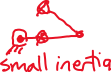 small inertia